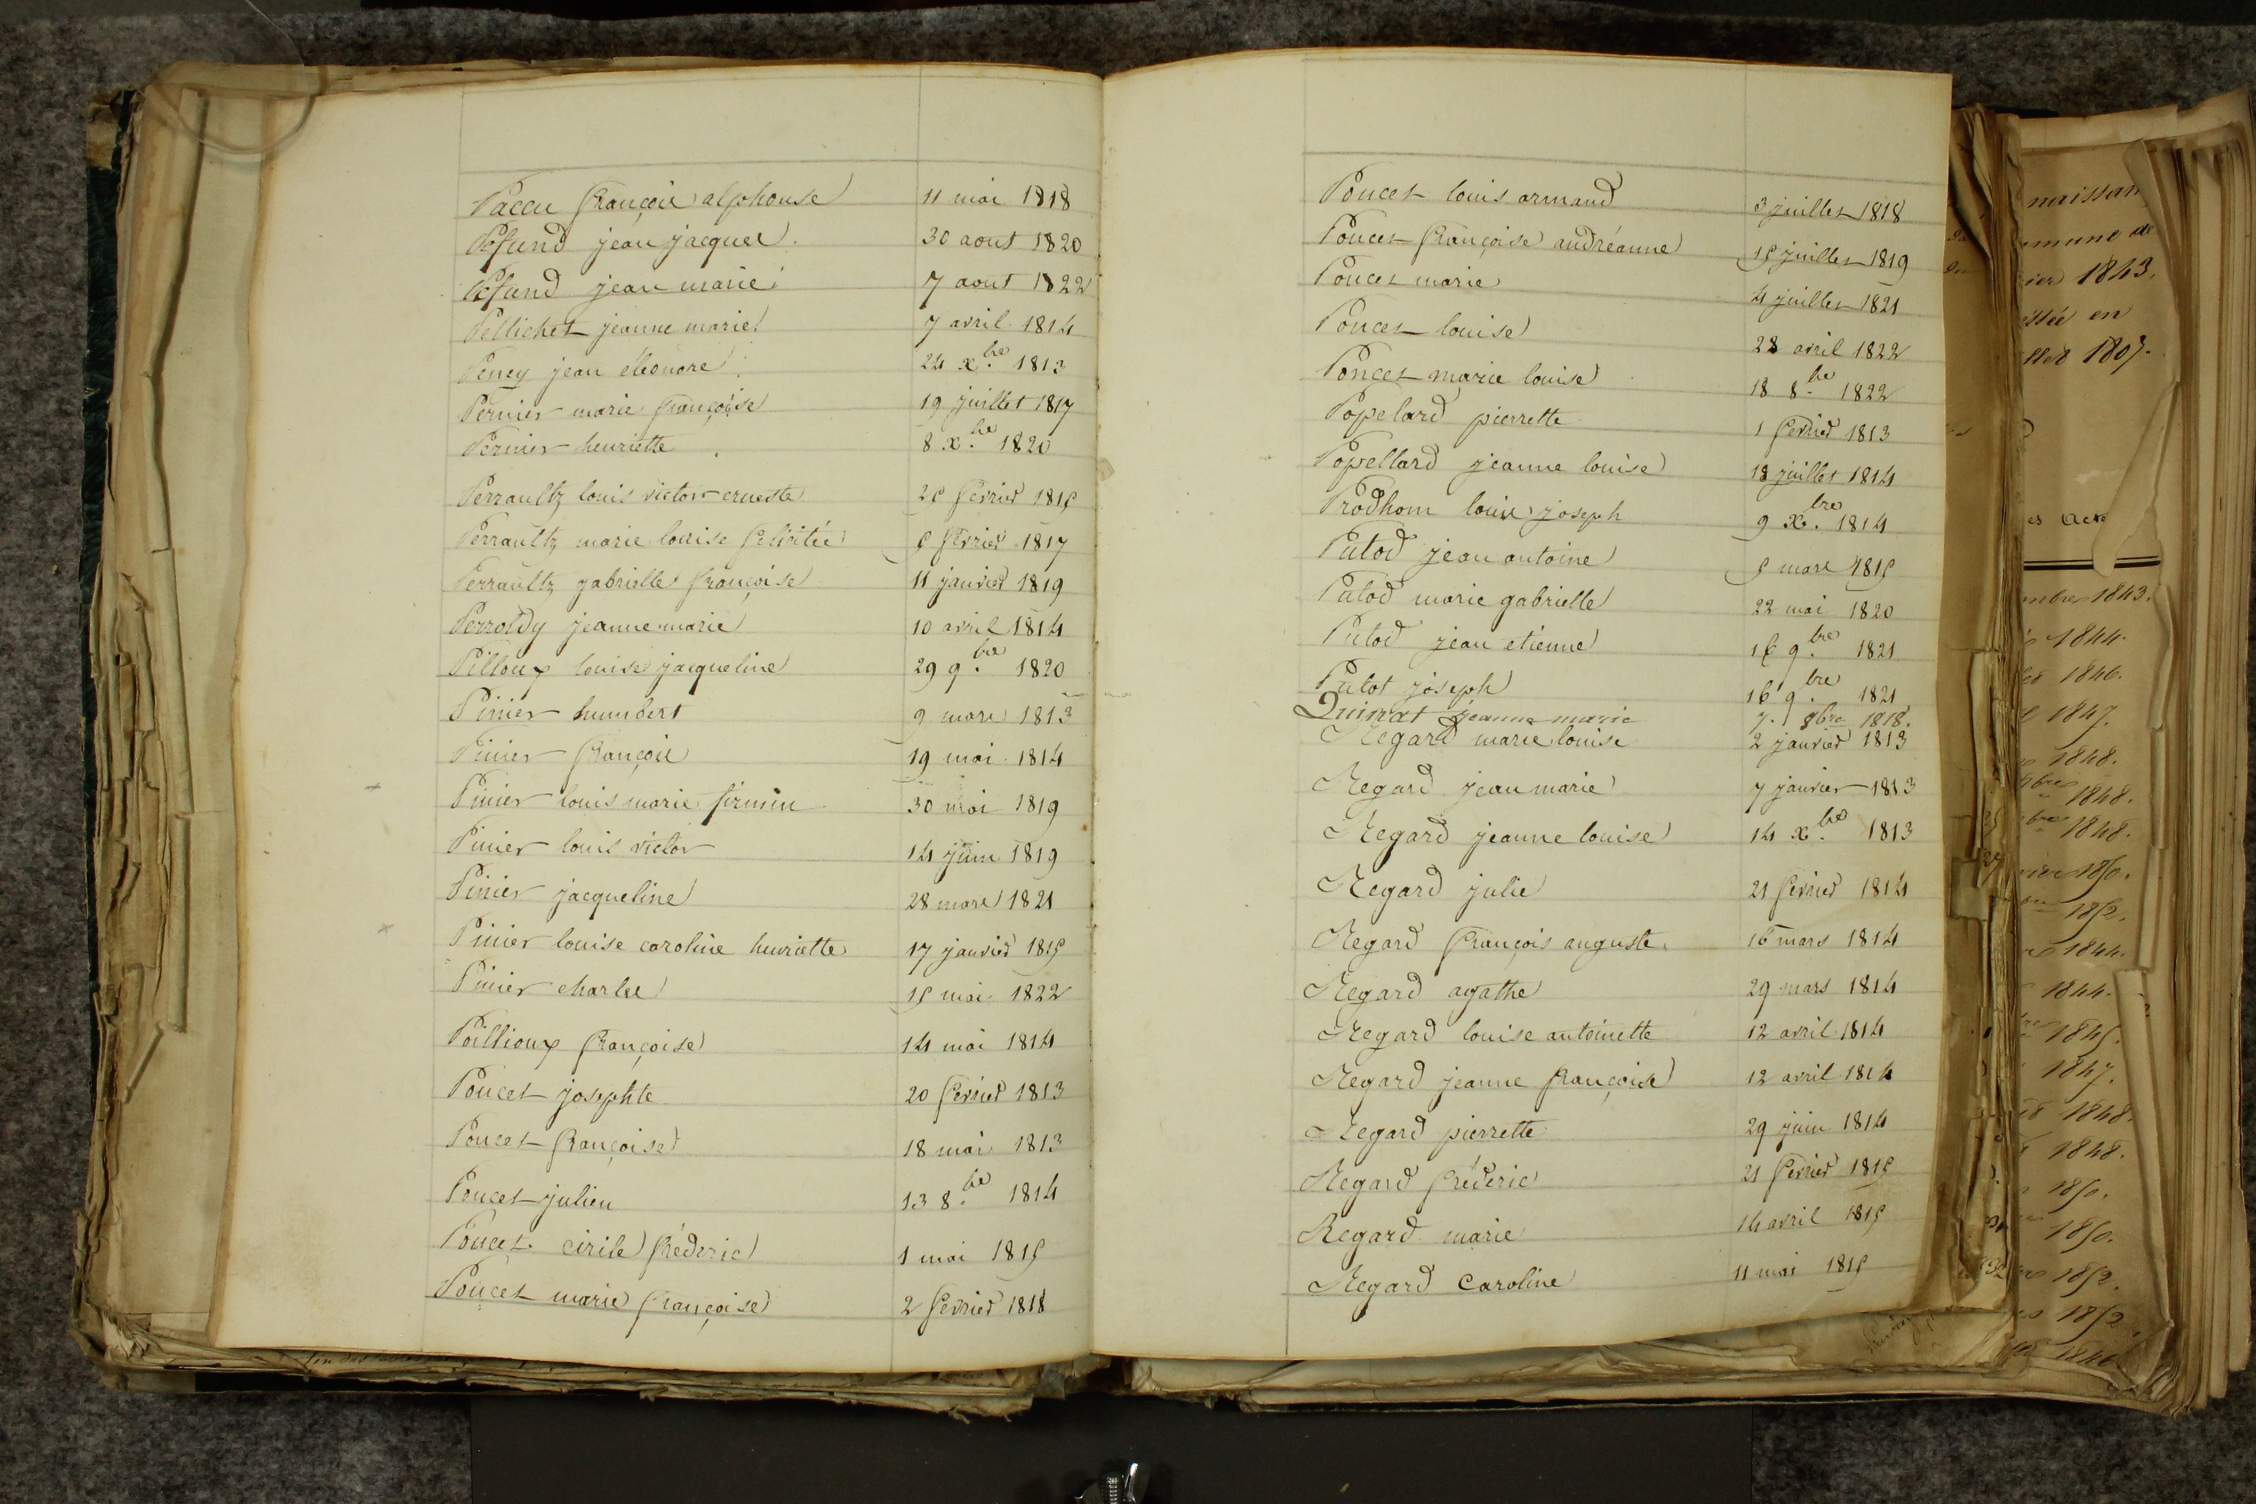 Paccu françois alphonse 11 mai 1818
Pefund jean jacques 30 aout 1820
Pefund jean marie 7 aout 1822
Pellichet jeanne marie 7 avril 1814
Pency jean éléonore 24 x.bre 1813
Pernier marie françoise 19 juillet 1817
Pernier henriette 8 x.bre 1820
Perraultz louis victor erneste 25 fevrier 1815
Perraultz marie louise felicitée 5 fevrier 1817
Perraultz gabrielle françoise 11 janvier 1819
Perroldy jeanne marie 10 avril 1814
Pilloux louise jacqueline 29 9.bre 1820
Pinier humbert 9 mars 1813
Pinier françois 19 mai 1814
Pinier louis marie firmin 30 mai 1819
Pinier louis victor 14 juin 1819
Pinier jacqueline 28 mars 1821
Pinier louise caroline henriette 17 janvier 1815
Pinier charles 15 mai 1822
Poillioux françoise 14 mai 1814
Poncet josephte 20 fevrier 1813
Poncet françoise 18 mai 1813
Poncet julien 13 8.bre 1814
Poncet cirile fréderic 1 mai 1815
Poncet marie françoise 2 fevrier 1818
Poncet louis armand 3 juillet 1818
Poncet françoise andréanne 15 juillet 1819
Poncet marie 4 juillet 1821
Poncet louise 28 avril 1822
Poncet marie louise 18 8.bre 1822
Popelard pierrette 1 fevrier 1813
Popellard jeanne louise 18 juillet 1814
Prodhom louis joseph 9 x.bre 1814
Putod jean antoine 5 mars 1815
Putod marie gabrielle 22 mai 1820
Putod jean etienne 16 9.bre 1821
Putot joseph 16 9.bre 1821
Quinat jeanne marie 7. 8bre 1818.
Regard marie louise 2 janvier 1813
Regard jean marie 7 janvier 1813
Regard jeanne louise 14 x.bre 1813
Regard julie 21 fevrier 1814
Regard françois auguste 16 mars 1814
Regard agathe 29 mars 1814
Regard louise antoinette 12 avril 1814
Regard jeanne françoise 12 avril 1814
Regard pierrette 29 juin 1814
Regard fréderic 21 fevrier 1815
Regard marie 14 avril 1815
Regard Caroline 11 mai 1815
naissan
mune de
1843.
en
1807.
es acte
mbre 1843.
1844.
1846.
1847.
1848.
bre 1848.
bre 1848.
1850.
1852.
1844.
1844.
1845.
1847.
1848.
1848.
1850.
1850.
1852.
1852.
1846